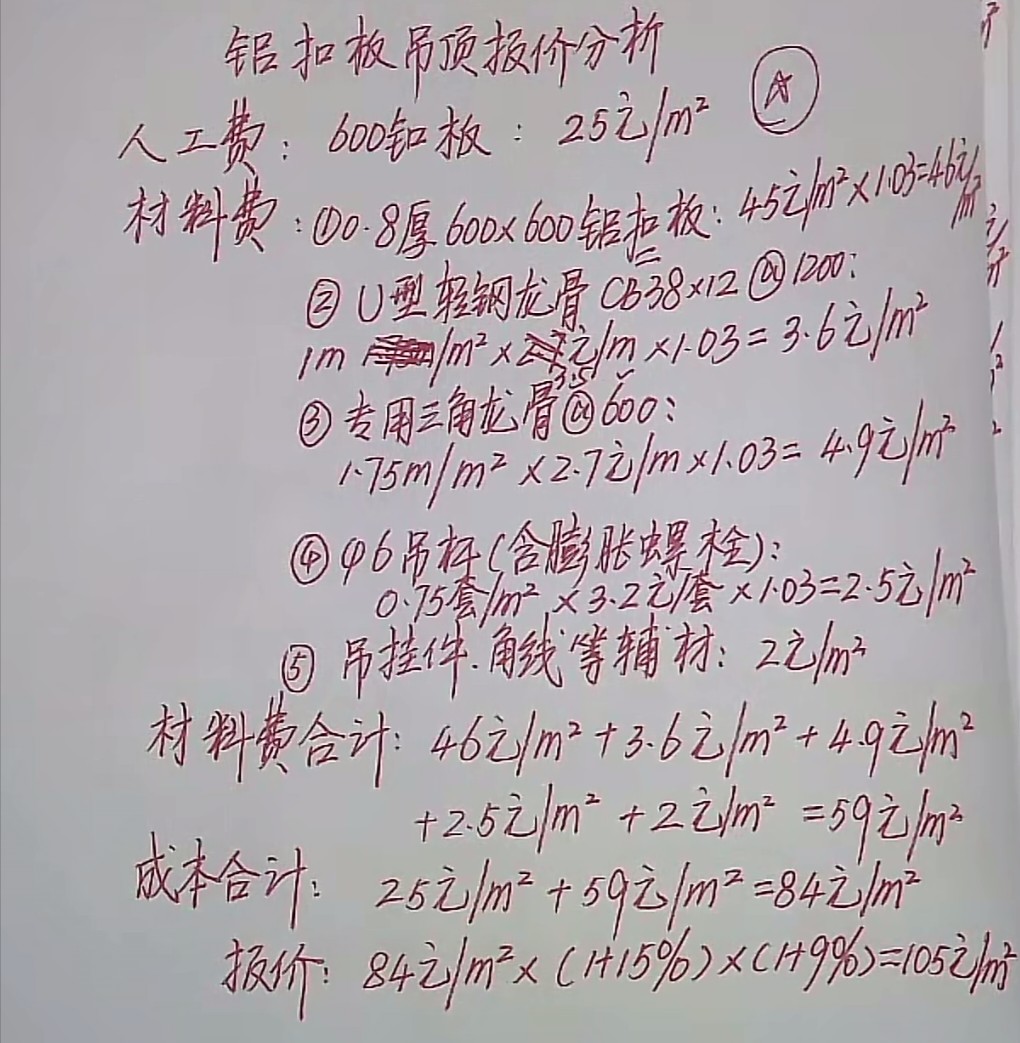 铝扣板吊顶报价分析
A
人工费: 600扣板: 25元/m²
材料费: ①0.8厚600×600铝扣板: 45元/m²×1.03=46元/m²
②U型轻钢龙骨CB38×12@1200:
1m /m²×3.5元/m×1.03=3.6元/m²
③专用三角龙骨@600:
1.75m/m²×2.7元/m×1.03=4.9元/m²
④φ6吊杆(含膨胀螺栓):
0.75套/m²×3.2元/套×1.03=2.5元/m²
⑤吊挂件.角线等辅材: 2元/m²
材料费合计: 46元/m²+3.6元/m²+4.9元/m²
+2.5元/m²+2元/m²=59元/m²
成本合计: 25元/m²+59元/m²=84元/m²
报价: 84元/m²×(1+15%)×(1+9%)=105元/m²